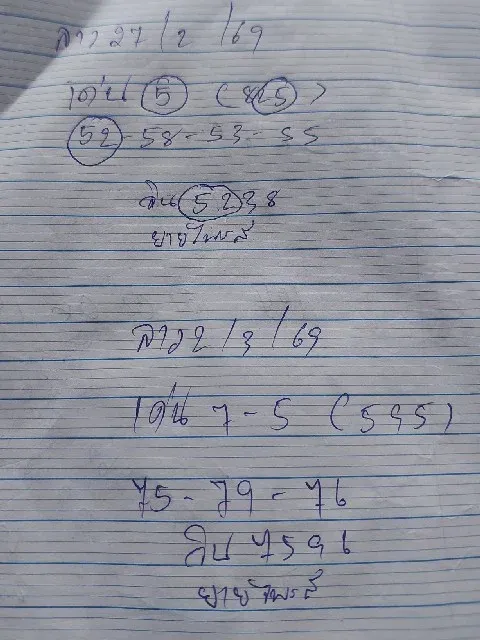 ลาว 27/2/69
เด่น 5 (825)
52-58-53-55
วิน 5238
ยายไพรส์
ลาว 2/3/69
เด่น 7-5 (595)
75-79-76
วิน 7596
ยายไพรส์